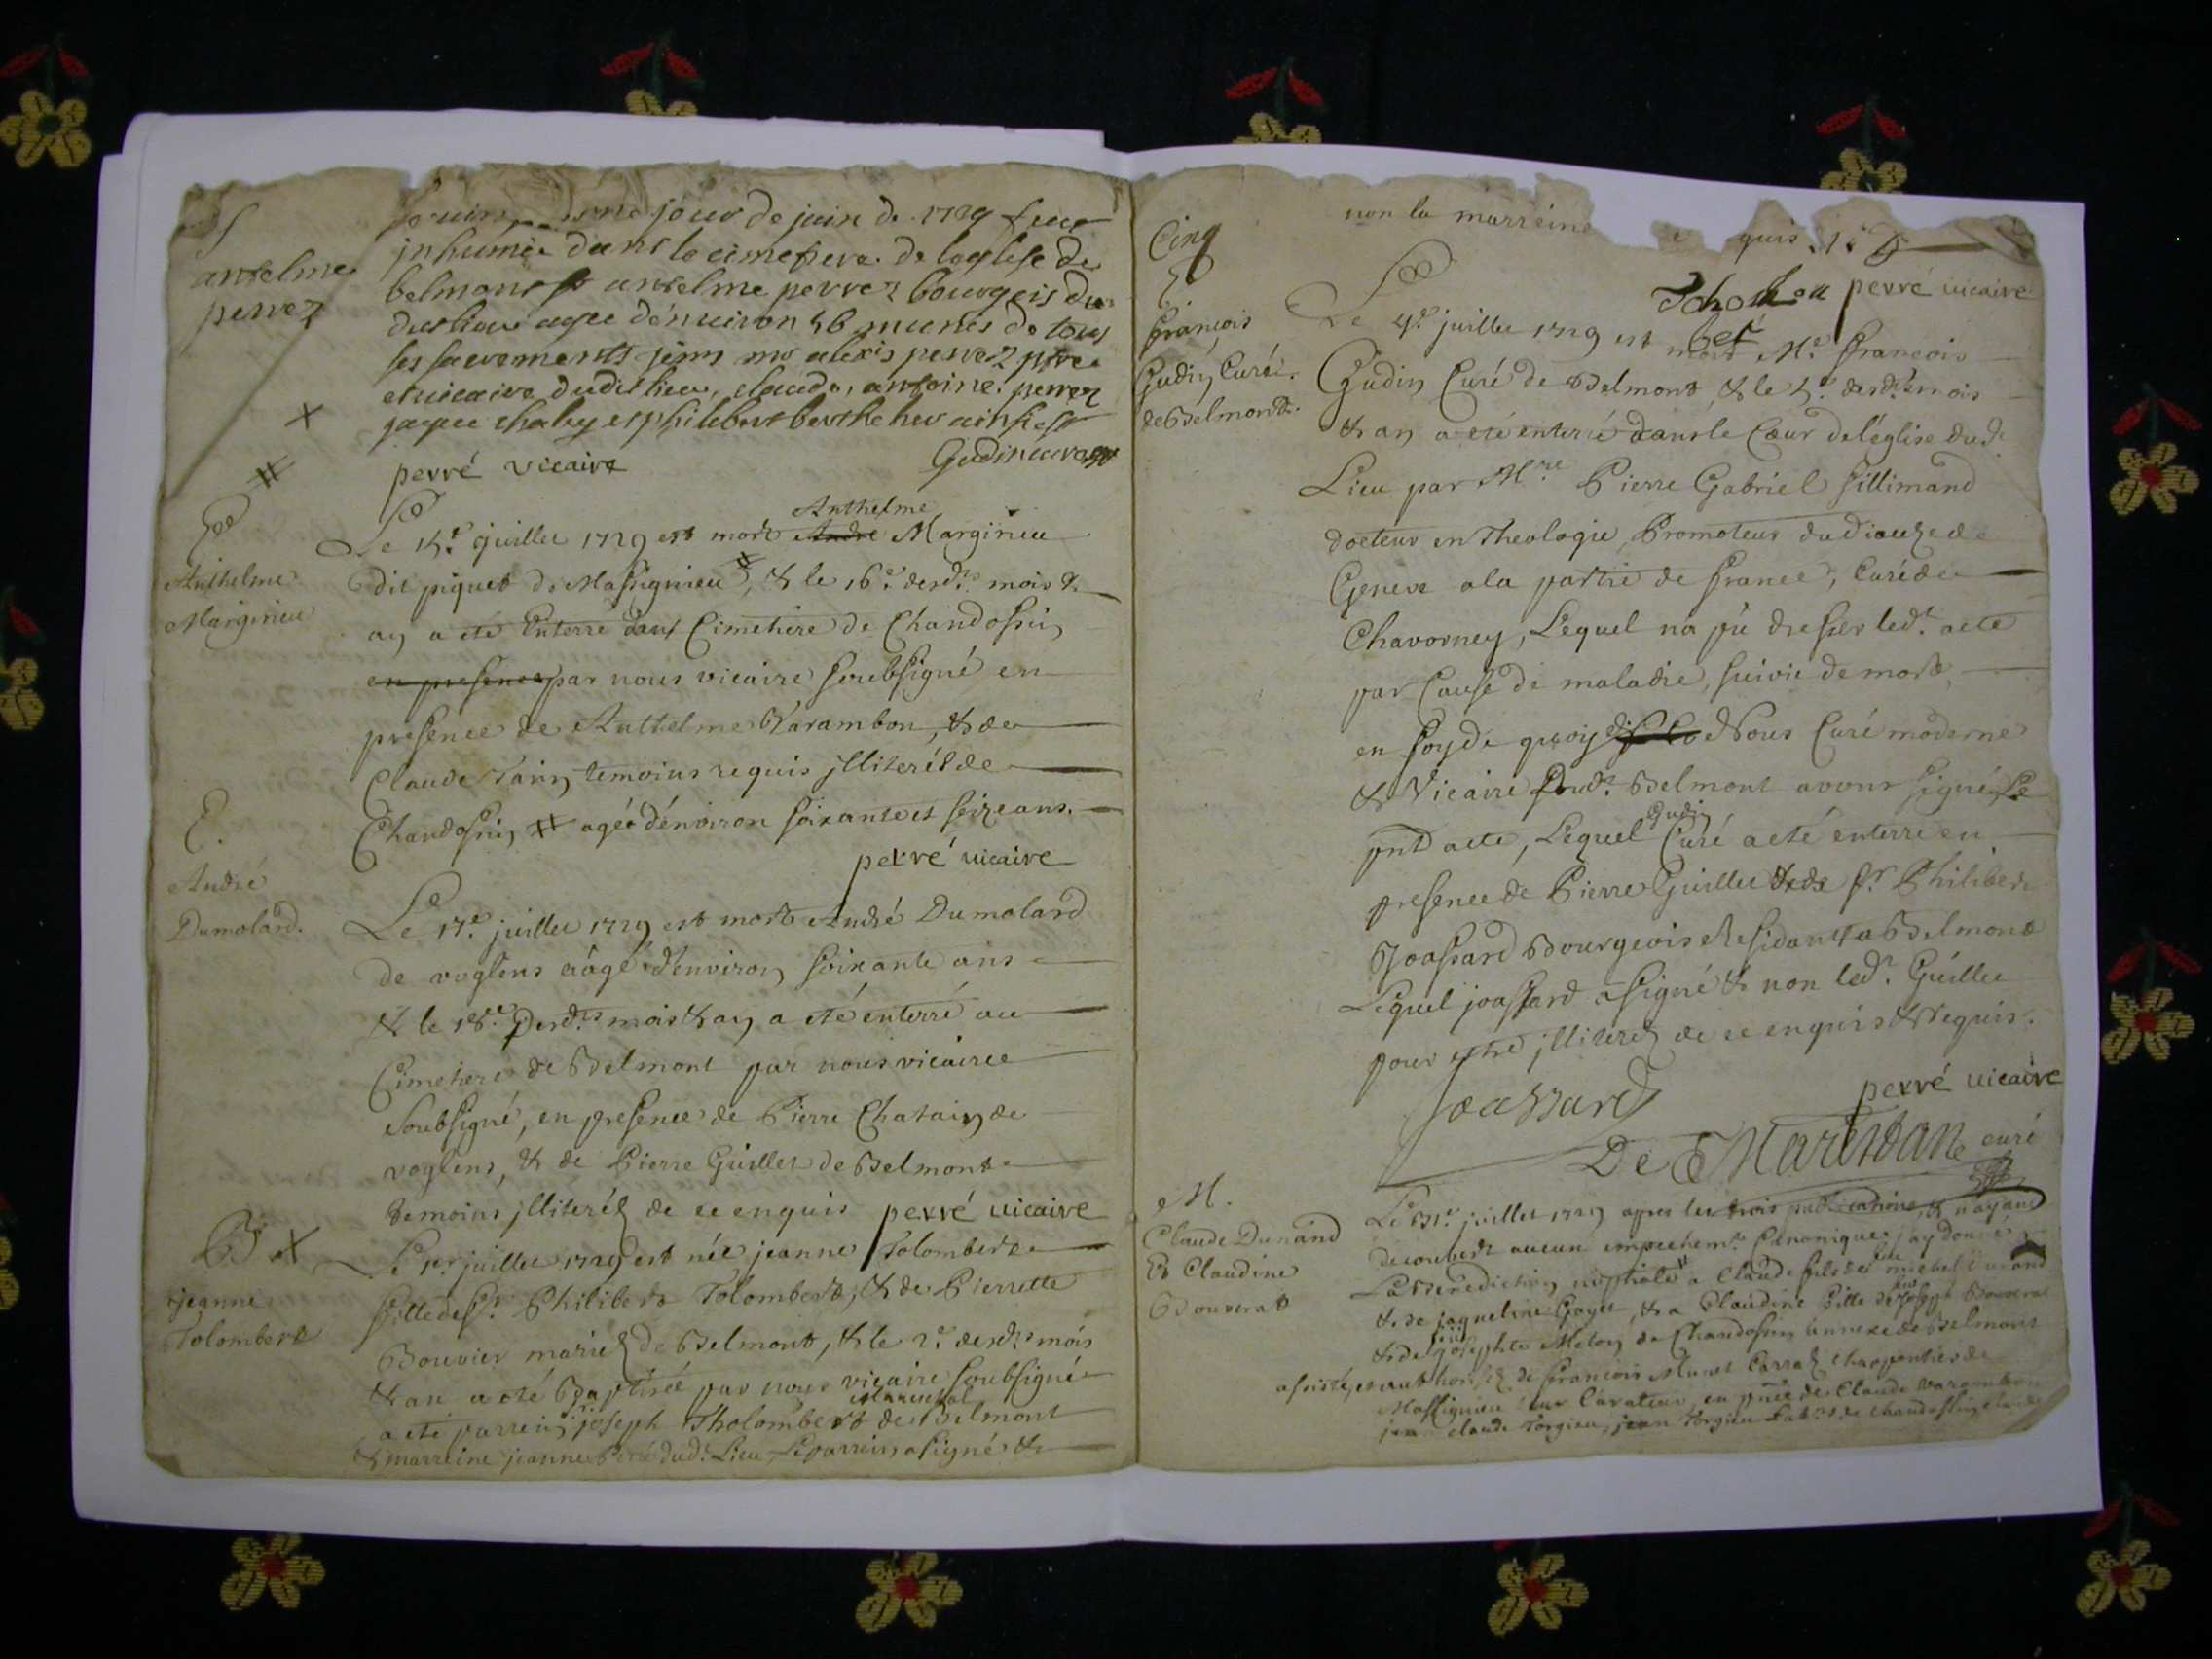 anselme
perrez
jour de juin de 1729 feut
inhumée dans le cimetiere de leglise de
belmont sr anselme perrez bourgeis du
dit lieu agee dénuiron 56 munis de tous
ses sacrements mr alexis perrez
et uicaire dudit lieu, claude, antoine perrez
chaley et philibert
perré vicaire
Anthelme
Marginieu
Le 15e juillet 1729 est mort Andre Anthelme Marginieu
dit piquet de Massignieu #, & le 16e desdts mois &
an a eté Enterré dans Cimetiere de Chandossin
en presence par nous vicaire soubsigné en
presence de Anthelme Varambon, & de
Claude temoins requis jlliteréz de
Chandossin # agé dénviron soixante et seize ans.
perré uicaire
E.
André
Dumolard.
Le 17e juillet 1729 est mort André Dumolard
de voglens aâgé d'environ soixante ans
& le 18e desdts mois & an a eté enterré au
Cimetiere de Belmont par nous vicaire
Soubsigné, en presence de Pierre Chatain de
voglens, & de Pierre Guillet de Belmont
temoins jlliteréz de ce enquis perré uicaire
B
jeanne
Tolombert
Le 1er juillet 1729 est née jeanne Tolombert
fille de Sr. Philibert Tolombert, & de Pierrette
Bouvier mariez de Belmont, & le 2e desdts mois
& an a eté Baptisée par nous vicaire soubsigné
a eté parrein joseph Tholombert Marechal de Belmont
& marreine jeanne dudt. Lieu Le parrein a signé &
Cinq
non la marreine
perré uicaire
françois
Gudin Curé
de Belmont.
Le 4e juillet 1729 est mort Me. françois
Gudin Curé de Belmont, & le 5e desdts mois
& an a eté enterré dans le Cœur de l'église dudt
Lieu par Mre Pierre Gabriel Sillimand
docteur en Theologie, Promoteur du diouzeze
Geneve a la partie de france, Curé de
Chavorney, Lequel na pû dresser ledt. acte
par Cause de maladie, suivie de mort,
en foy de quoy Nous Curé moderne
& Vicaire dudt. Belmont avons signé le
pnt acte, Lequel Gudin Curé a eté enterré en
presence de Pierre Guillet & de sr Philibert
Joassard Bourgeois Residant a Belmont
Lequel joassard a signé & non ledt. Guillet
pour estre jlliterez de ce enquis & requis.
Joassard
perré uicaire
De Marestan curé
M.
Claude Dunand
& Claudine
Bouvera
Le juillet 1729 apres les trois publications, & nayant
decouvert aucun empechemt. Canonique jay donné
La Benediction nuptiale a Claude fils de michel
& de jaqueline Goyet, & a Claudine fille de Bouvera
& de de Chandossin annexe de Belmont
assistée, de françois Munet charpentier de
Massignieu Leur Curateur, en pnce de Claude varambon
claude Torgieu, jean Torgieu de chandossin